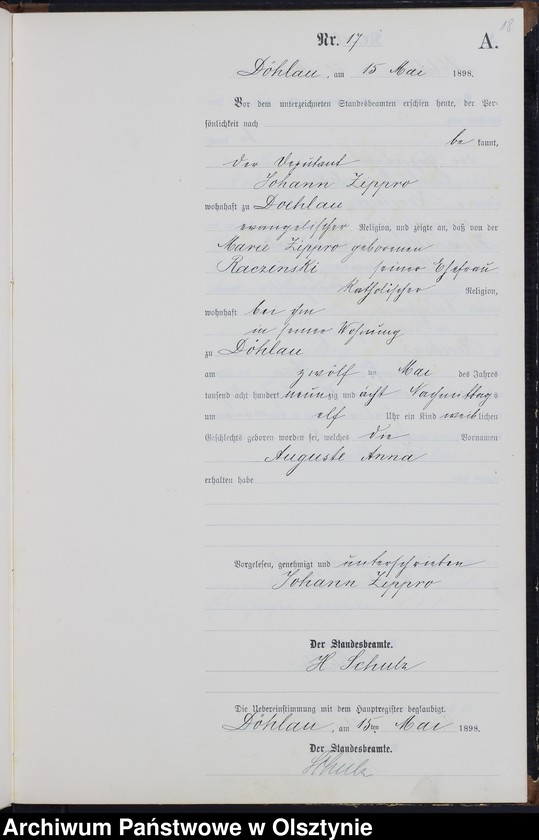 18
Nr. 17
A.
Döhlau, am 15 Mai 1898.
Vor dem unterzeichneten Standesbeamten erschien heute, der Per-
sönlichkeit nach
be kannt,
der Deputant
Johann Zippro
wohnhaft zu Doehlau
evangelischer Religion, und zeigte an, daß von der
Marie Zippro geborenen
Raczinski seiner Ehefrau
Katholischer Religion,
wohnhaft bei ihm
in seiner Wohnung
zu Döhlau
am zwölf ten Mai des Jahres
tausend acht hundert neunzig und acht Nachmittags
um elf Uhr ein Kind weiblichen
Geschlechts geboren worden sei, welches die Vornamen
Auguste Anna
erhalten habe
Vorgelesen, genehmigt und unterschrieben
Johann Zippro
Der Standesbeamte.
H Schulz
Die Uebereinstimmung mit dem Hauptregister beglaubigt.
Döhlau, am 15ten Mai 1898.
Der Standesbeamte.
Schulz
Archiwum Państwowe w Olsztynie